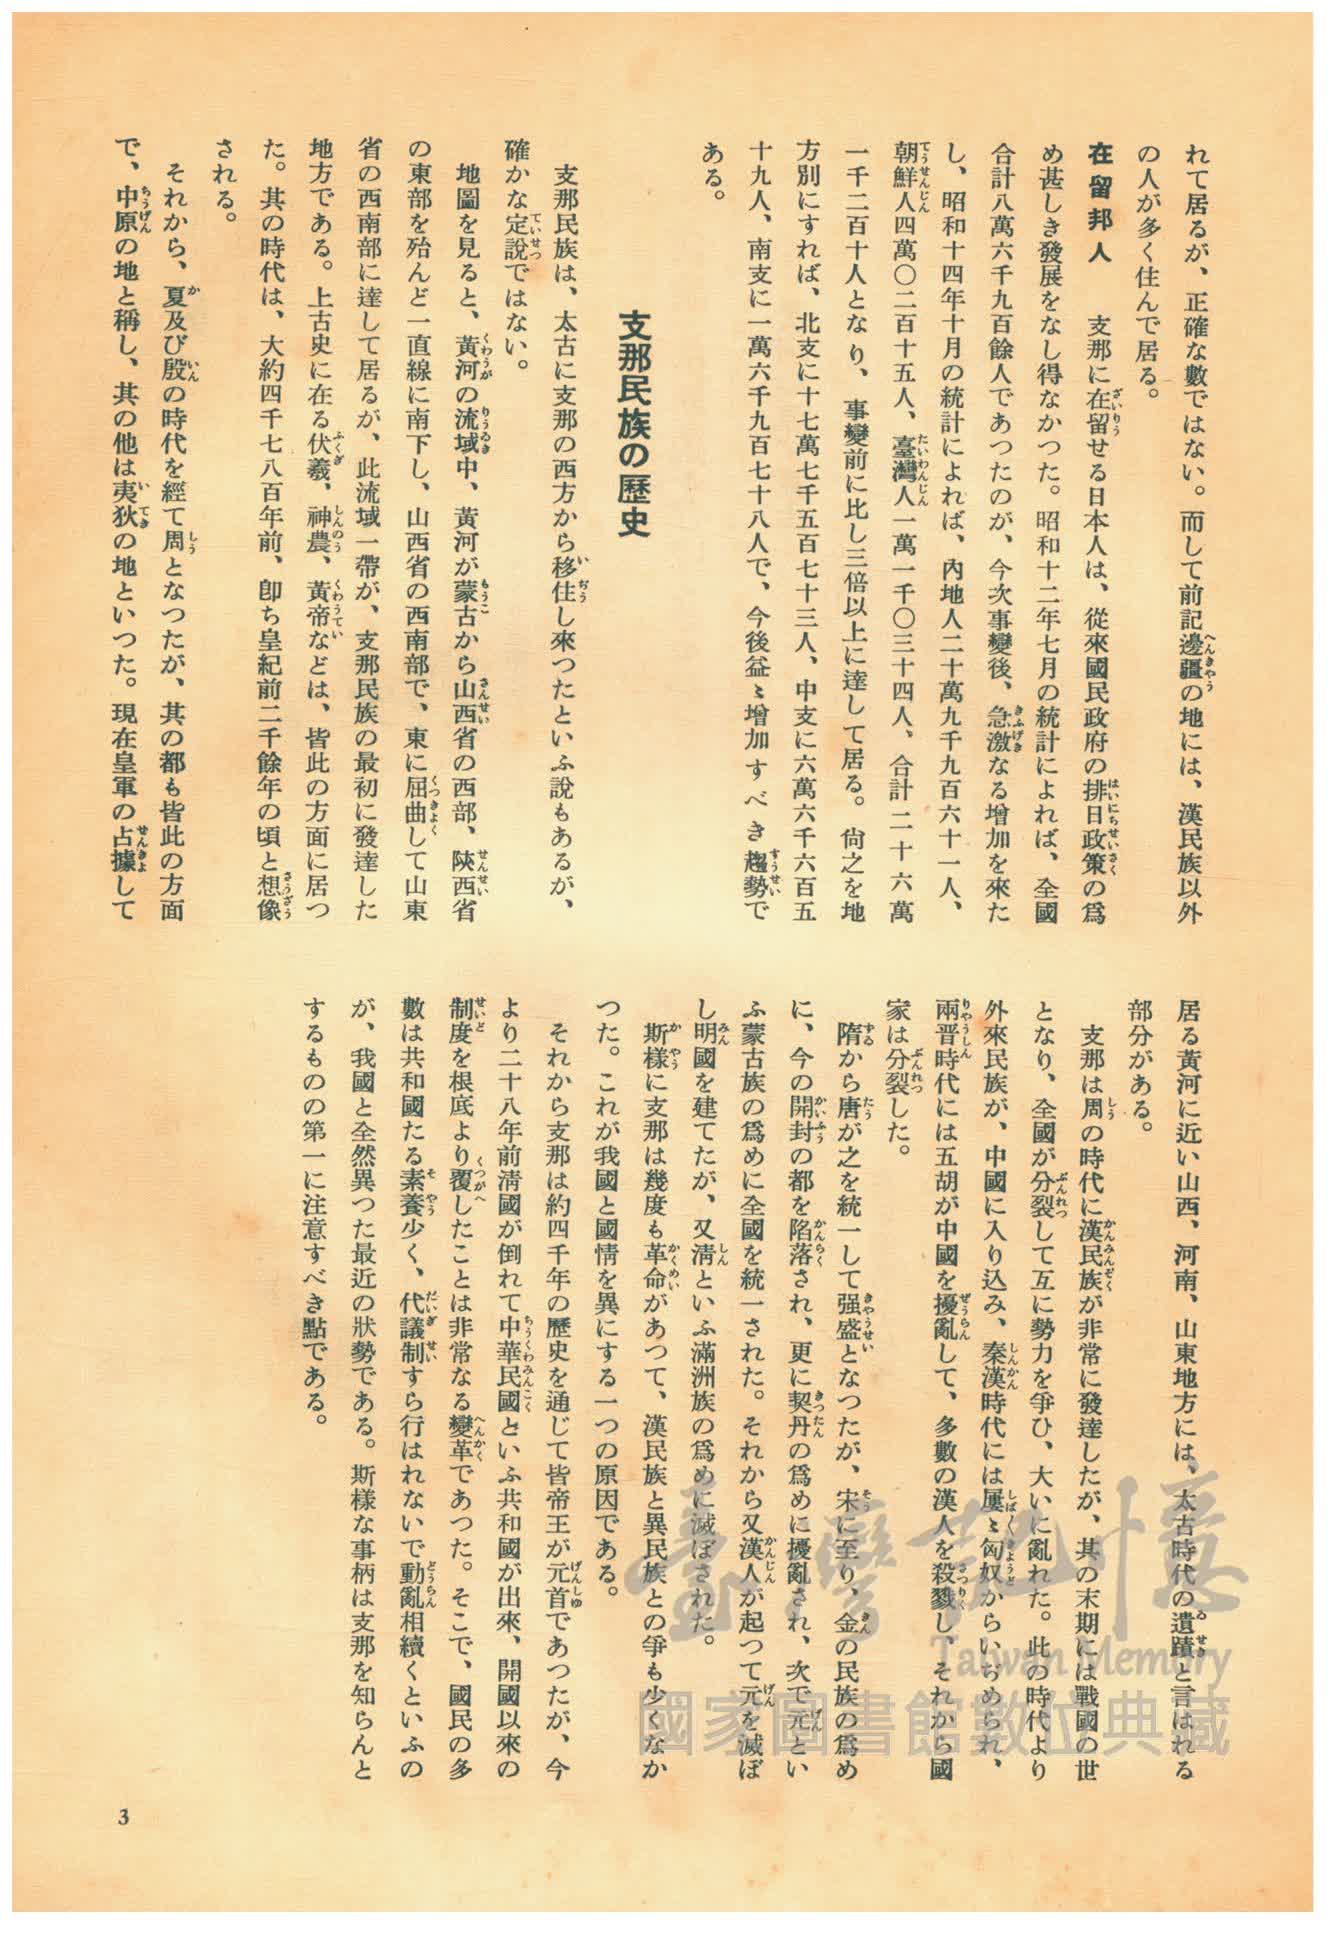 れて居るが、正確な數ではない。而して前記邊疆の地には、漢民族以外
の人が多く住んで居る。
在留邦人　支那に在留せる日本人は、從來國民政府の排日政策の爲
め甚しき發展をなし得なかつた。昭和十二年七月の統計によれば、全國
合計八萬六千九百餘人であつたのが、今次事變後、急激なる增加を來た
し、昭和十四年十月の統計によれば、內地人二十萬九千九百六十一人、
朝鮮人四萬〇二百十五人、臺灣人一萬一千〇三十四人、合計二十六萬
一千二百十人となり、事變前に比し三倍以上に達して居る。尙之を地
方別にすれば、北支に十七萬七千五百七十三人、中支に六萬六千六百五
十九人、南支に一萬六千九百七十八人で、今後益〻增加すべき趨勢で
ある。
支那民族の歷史
支那民族は、太古に支那の西方から移住し來つたといふ說もあるが、
確かな定說ではない。
地圖を見ると、黃河の流域中、黃河が蒙古から山西省の西部、陝西省
の東部を殆んど一直線に南下し、山西省の西南部で、東に屈曲して山東
省の西南部に達して居るが、此流域一帶が、支那民族の最初に發達した
地方である。上古史に在る伏羲、神農、黃帝などは、皆此の方面に居つ
た。其の時代は、大約四千七八百年前、卽ち皇紀前二千餘年の頃と想像
される。
それから、夏及び殷の時代を經て周となつたが、其の都も皆此の方面
で、中原の地と稱し、其の他は夷狄の地といつた。現在皇軍の占據して
居る黃河に近い山西、河南、山東地方には、太古時代の遺蹟と言はれる
部分がある。
支那は周の時代に漢民族が非常に發達したが、其の末期には戰國の世
となり、全國が分裂して互に勢力を爭ひ、大いに亂れた。此の時代より
外來民族が、中國に入り込み、秦漢時代には屢〻匈奴からいぢめられ、
兩晋時代には五胡が中國を擾亂して、多數の漢人を殺戮し、それから國
家は分裂した。
隋から唐が之を統一して强盛となつたが、宋に至り、金の民族の爲め
に、今の開封の都を陷落され、更に契丹の爲めに擾亂され、次で元とい
ふ蒙古族の爲めに全國を統一された。それから又漢人が起つて元を滅ぼ
し明國を建てたが、又淸といふ滿洲族の爲めに滅ぼされた。
斯樣に支那は幾度も革命があつて、漢民族と異民族との爭も少くなか
つた。これが我國と國情を異にする一つの原因である。
それから支那は約四千年の歷史を通じて皆帝王が元首であつたが、今
より二十八年前淸國が倒れて中華民國といふ共和國が出來、開國以來の
制度を根底より覆したことは非常なる變革であつた。そこで、國民の多
數は共和國たる素養少く、代議制すら行はれないで動亂相續くといふの
が、我國と全然異つた最近の狀勢である。斯樣な事柄は支那を知らんと
するものの第一に注意すべき點である。
臺灣記憶
Taiwan Memory
國家圖書館數位典藏
3